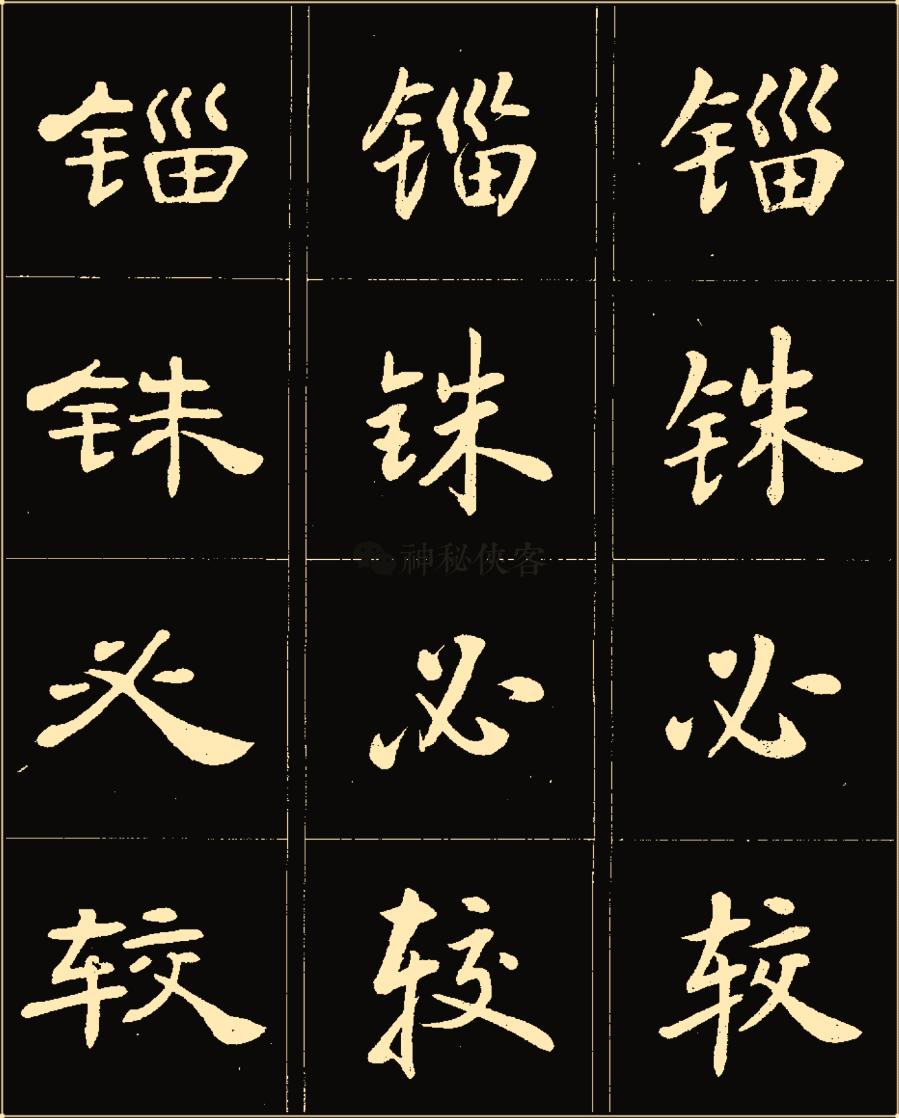 锱锱锱
铢铢铢
必必必
神秘侠客
较较较